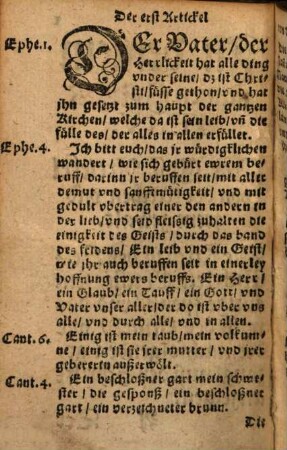 Der erst Artickel
Ephe.1. DEr Vater/der
Herrlickeit hat alle ding
vnder seine/dz ist Chri-
sti/füsse gethon/vnd hat
jhn gesetzt zum haupt der gantzen
Kirchen/welche da ist sein leib/vñ die
fülle des/der alles in allen erfüllet.
Ephe.4. Ich bitt euch/das jr würdigklichen
wandert/wie sich gebürt ewrem be-
ruff/darinn jr beruffen seit/mit aller
demut vnd sanfftmütigkeit/vnd mit
gedult vbertrag einer den andern in
der lieb/vnd seid fleissig zuhalten die
einigkeit des Geists/durch das band
des feidens/Ein leib vnd ein Geist/
wie jhr auch beruffen seit in einerley
hoffnung ewers beruffs. Ein Herr/
ein Glaub/ein Tauff/ein Gott/vnd
Vater vnser aller/der do ist vber vns
alle/vnd durch alle/vnd in allen.
Cant.6. Einig ist mein taub/mein volkum-
ne/einig ist sie jrer mutter/vnd jrer
gebererin außerwölt.
Cant.4. Ein beschloßner gart mein schwe-
ster/die gesponß/ein beschloßner
gart/ein verzeichneter brunn.
Die